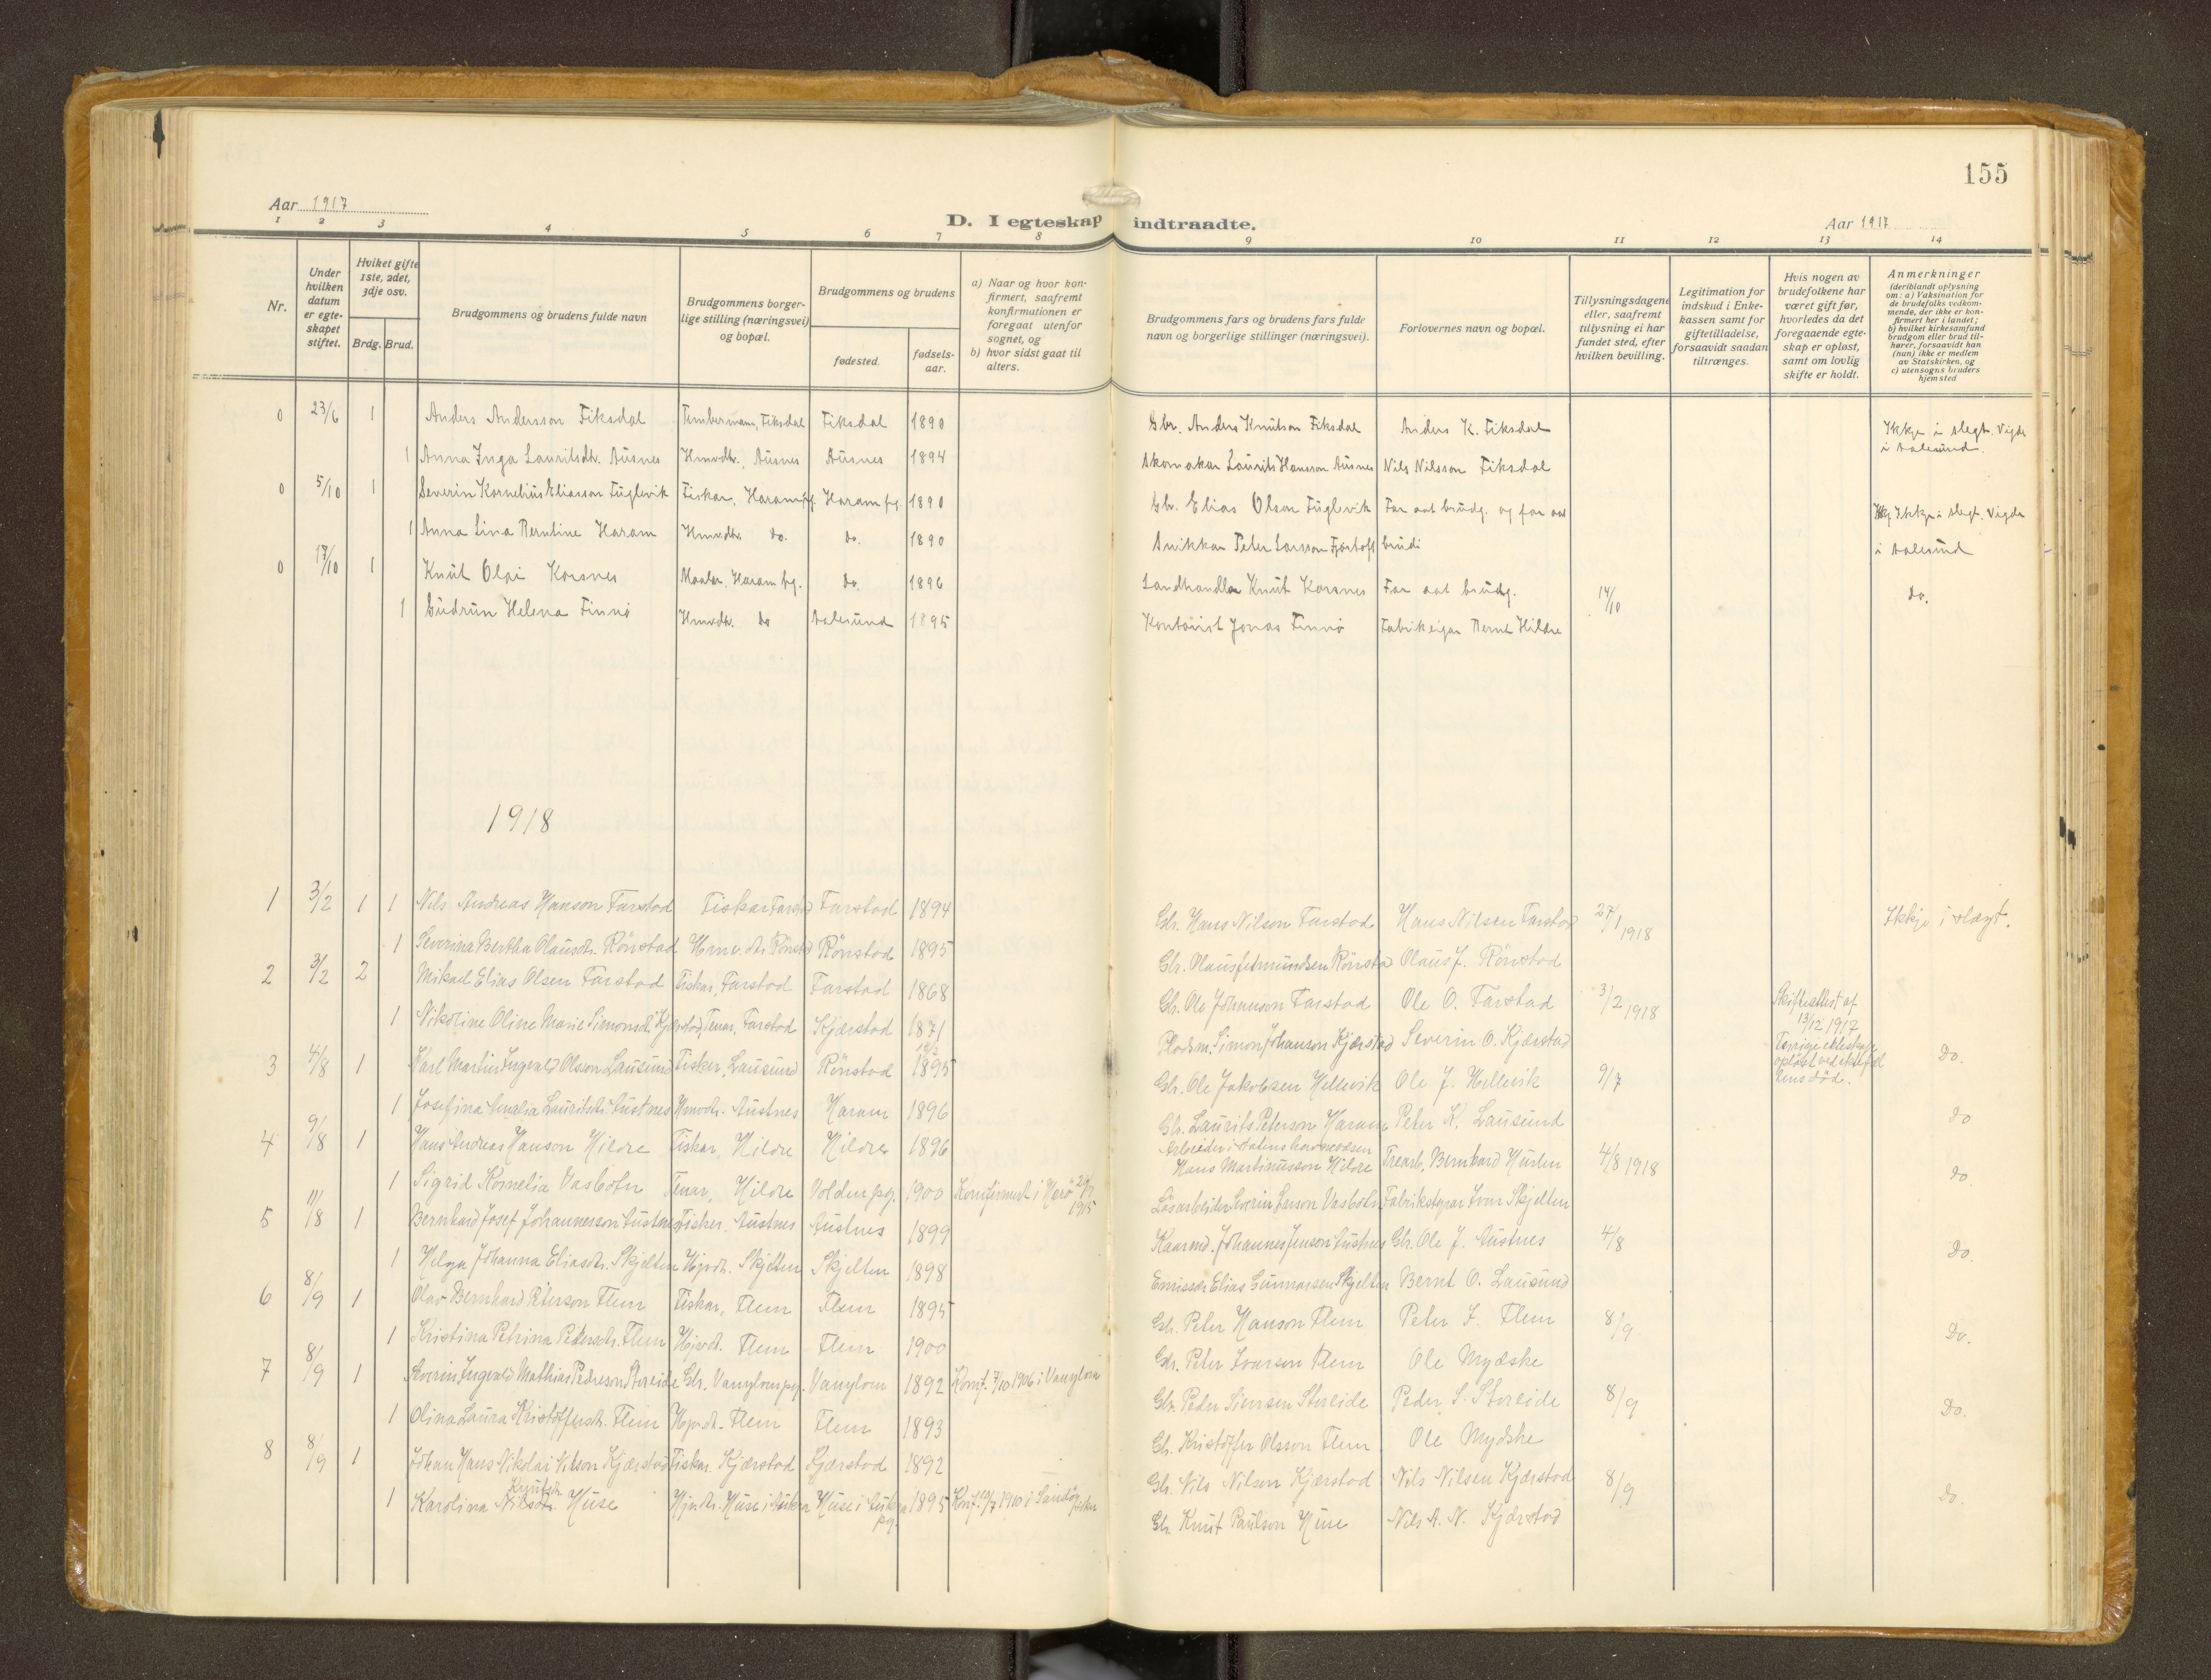 155
Aar 1917
D. I egteskap indtraadte.
Aar 1917
1 2 3 4 5 6 7 8 9 10 11 12 13 14
Nr.
Under
hvilken
datum
er egte-
skapet
stiftet.
Hvilket gifte
1ste, 2det,
3dje osv.
Brdg. Brud.
Brudgommens og brudens fulde navn
Brudgommens borger-
lige stilling (næringsvei)
og bopæl.
Brudgommens og brudens
fødested.
fødsels-
aar.
a) Naar og hvor kon-
firmert, saafremt
konfirmationen er
foregaat utenfor
sognet, og
b) hvor sidst gaat til
alters.
Brudgommens fars og brudens fars fulde
navn og borgerlige stillinger (næringsvei).
Forlovernes navn og bopæl.
Tillysningsdagene
eller, saafremt
tillysning ei har
fundet sted, efter
hvilken bevilling.
Legitimation for
indskud i Enke-
kassen samt for
giftetilladelse,
forsaavidt saadan
tiltrænges.
Hvis nogen av
brudefolkene har
været gift før,
hvorledes da det
foregaaende egte-
skap er opløst,
samt om lovlig
skifte er holdt.
Anmerkninger
(deriblandt oplysning
om: a) Vaksination for
de brudefolks vedkom-
mende, der ikke er kon-
firmert her i landet;
b) hvilket kirkesamfund
brudgom eller brud til-
hører, forsaavidt han
(hun) ikke er medlem
av Statskirken, og
c) utensogns bruders
hjemsted
0 23/6 1 Anders Andersson Fiksdal Tømbermann, Fiksdal Fiksdal 1890 Gbr. Anders Knutson Fiksdal Anders K. Fiksdal Ikkje i slegt. Vigde
i Aalesund.
1 Anna Inga Lauritsdtr. Ausnes Hmvdtr. Ausnes Ausnes 1894 Skomakar Laurits Hansson Ausnes Nils Nilsson Fiksdal
0 5/10 1 Severin Kornelius Eliasson Fuglevik Fiskar, Haram pg. Haram pg. 1890 Gbr. Elias Olson Fuglevik Far aat brudg. og far aat Ikkje i slegt. Vigde
1 Anna Lina Berntine Haram Hmvdtr. do. do. 1890 Snikkar Peter Larsson Fjørtoft brudi i Aalesund
0 17/10 1 Knut Olai Korsnes Maalar, Haram pg. do. 1896 Landhandlar Knut Korsnes Far aat brudg. 14/10 do.
1 Gudrun Helena Finnø Hmvdtr. do Aalesund 1895 Kontorist Jonas Finnø Fabrikeigar Bernt Hildre
1918
1 3/2 1 1 Nils Andreas Hanson Farstad Fiskar Farstad Farstad 1894 Gbr. Hans Nilson Farstad Hans Nilsen Farstad 27/1 1918 Ikkje i slægt.
1 Severina Bertha Olausdtr. Rönstad Hmvdtr. Rönstad Rönstad 1895 Gbr. Olaus Jetmundsen Rönstad Olaus J. Rönstad
2 3/2 2 Mikael Elias Olsen Farstad Fiskar, Farstad Farstad 1868 Gbr. Ole Johanson Farstad Ole O. Farstad 3/2 1918 Skifteattest af
13/12 1917
1 Nikoline Oline Marie Simonsdtr. Kjærstad Tenar, Farstad Kjærstad 1871 Pladsm. Simon Johanson Kjærstad Severin O. Kjærstad
3 4/8 1 Karl Martin Ingvald Olsson Lausund Fiskar, Lausund Rönstad 1895 Gbr. Ole Jakobsen Hellevik Ole J. Hellevik 9/7 Do.
1 Josefina Amalia Lauritsdtr. Austnes Hmvdtr. Austnes Haram 1896 Gbr. Laurits Peterson Haram Peter K. Lausund Do
4 9/8 1 Hans Andreas Hanson Hildre Fiskar, Hildre Hildre 1896 Hans Martinusson Hildre Trearb. Bernhard Hurlen 4/8 1918
1 Sigrid Kornelia Vasbotn Tenar, Hildre Volden pg. 1900 Konfirmert i Herö 1915 Lösarbeider Severin Larson Vasbotn Fabrikeigar Ivar Skjelten Do.
5 11/8 1 Bernhard Josef Johannesson Austnes Fisker, Austnes Austnes 1899 Kaarmd. Johannes Jenson Austnes Gbr. Ole J. Austnes 4/8
1 Helga Johanna Eliasdtr. Skjelten Hjvdtr. Skjelten Skjelten 1898 Emissær Elias Gunnarsen Skjelten Bernt O. Lausund Do.
6 8/9 1 Olav Bernhard Peterson Flem Fiskar, Flem Flem 1895 Gbr. Peter Hanson Flem Peter J. Flem 8/9
1 Kristina Petrina Petersdtr. Flem Hjvdt. Flem Flem 1900 Gbr. Peter Ivarson Flem Ole Mydske Do.
7 8/9 1 Severin Ingvald Mathias Pederson Storeide Gbr. Vanylven pg. Vanylven 1892 Konf. 7/10 1906 i Vanylven Gbr. Peder Storeide Peder S. Storeide 8/9
1 Olina Laura Kristoffersdtr. Flem Hjvdt. Flem Flem 1893 Gbr. Kristoffer Olsson Flem Ole Mydske Do.
8 8/9 1 Johan Hans Nikolai Nilson Kjærstad Fiskar Kjærstad Kjærstad 1892 Gbr. Nils Nilson Kjærstad Nils Nilsen Kjærstad 8/9
1 Karolina Knutsdr. Huse Hjvdtr. Huse i Aukra Huse i Aukra pg. 1895 Konf. 10/7 1910 i Sandöy Gbr. Knut Paulson Huse Nils A. N. Kjærstad Do.